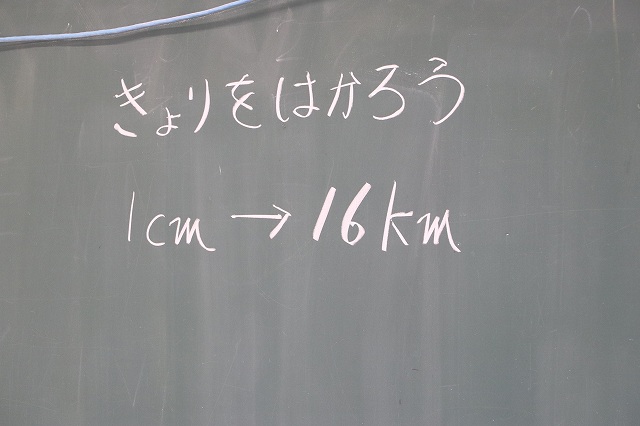 きょりをはかろう
1cm→16km